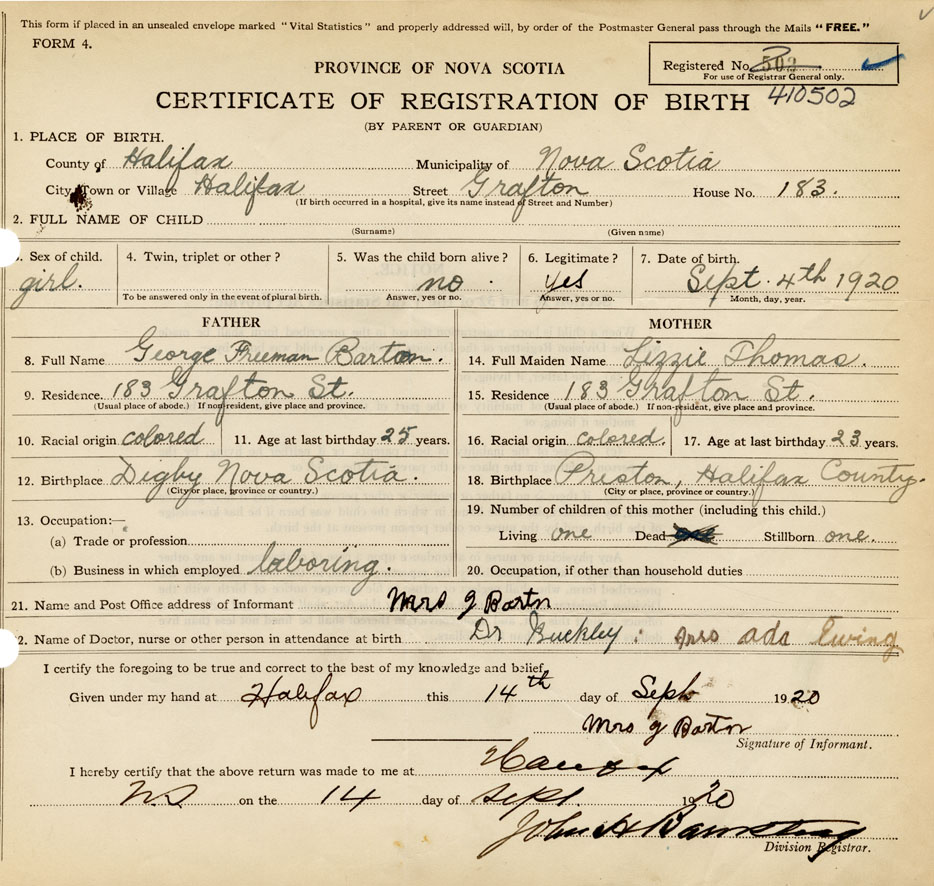 This form if placed in an unsealed envelope marked "Vital Statistics" and properly addressed will, by order of the Postmaster General pass through the Mails "FREE."
FORM 4.
Registered No. 502
For use of Registrar General only.
410502
PROVINCE OF NOVA SCOTIA
CERTIFICATE OF REGISTRATION OF BIRTH
(BY PARENT OR GUARDIAN)
1. PLACE OF BIRTH.
County of Halifax Municipality of Nova Scotia
City, Town or Village Halifax Street Grafton House No. 183.
(If birth occurred in a hospital, give its name instead of Street and Number)
2. FULL NAME OF CHILD
(Surname) (Given name)
. Sex of child. 4. Twin, triplet or other? 5. Was the child born alive? 6. Legitimate? 7. Date of birth.
girl. no. yes Sept. 4th 1920
To be answered only in the event of plural birth. Answer, yes or no. Answer, yes or no. Month, day, year.
FATHER MOTHER
8. Full Name George Freeman Barton. 14. Full Maiden Name Lizzie Thomas.
9. Residence 183 Grafton St. 15. Residence 183 Grafton St.
(Usual place of abode.) If non-resident, give place and province. (Usual place of abode.) If non-resident, give place and province.
10. Racial origin colored 11. Age at last birthday 25 years. 16. Racial origin colored. 17. Age at last birthday 23 years.
12. Birthplace Digby Nova Scotia. 18. Birthplace Preston, Halifax County.
(City or place, province or country.) (City or place, province or country.)
13. Occupation:— 19. Number of children of this mother (including this child.)
(a) Trade or profession Living one Dead Stillborn one.
(b) Business in which employed laboring. 20. Occupation, if other than household duties
21. Name and Post Office address of Informant Mrs G Barton
2. Name of Doctor, nurse or other person in attendance at birth Dr Buckley: Mrs ada Ewing
I certify the foregoing to be true and correct to the best of my knowledge and belief.
Given under my hand at Halifax this 14th day of Sept 1920
Mrs G Barton
Signature of Informant.
I hereby certify that the above return was made to me at Halifax
N.S on the 14 day of Sept. 1920
John H
Division Registrar.